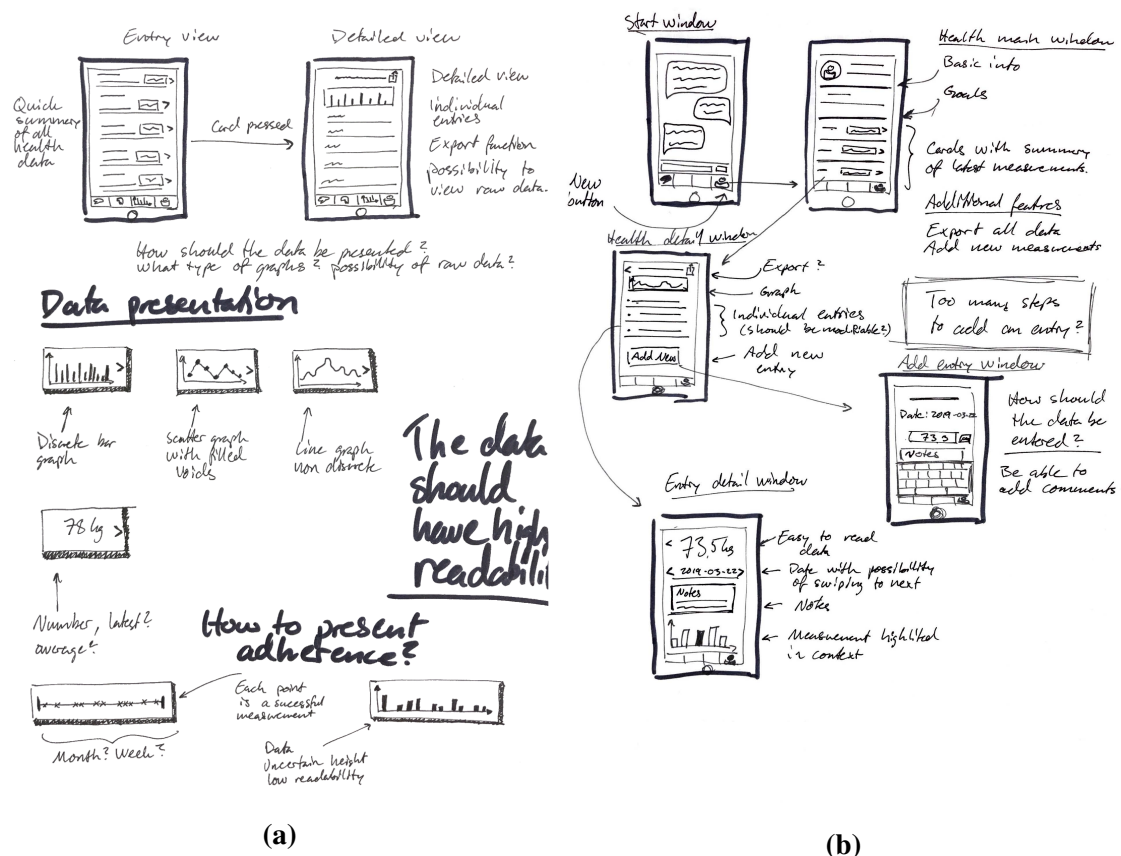 Entry view
Detailed view
Quick
summary
of all
health
data
Card pressed
Detailed view
Individual
entries
Export function
possibility to
view raw data.
How should the data be presented?
What type of graphs? possibility of raw data?
Data presentation
Discrete bar
graph
Scatter graph
with filled
voids
Line graph
non discrete
The data
should
have high
readabili
78 kg >
Number, latest?
average?
How to present
adherence?
Each point
is a sucessful
measurement
Month? Week?
Data
Uncertain height
low readability
(a)
Start window
New
button
Health main window
Basic info
Goals
Cards with summary
of latest measurements.
Additional featres
Export all data
Add new measurements
Health detail window
Export?
Graph
Individual entries
(should be modifiable?)
Add New
Add new
entry
Too many steps
to add an entry?
Add entry window
Date: 2019-03-22
73.5
Notes
How should
the data be
entered?
Be able to
add comments
Entry detail window
< 73,5kg
< 2019-03-22 >
Notes
Easy to read
data
Date with possibility
of swiping to next
Notes
Measurement highlited
in context
(b)